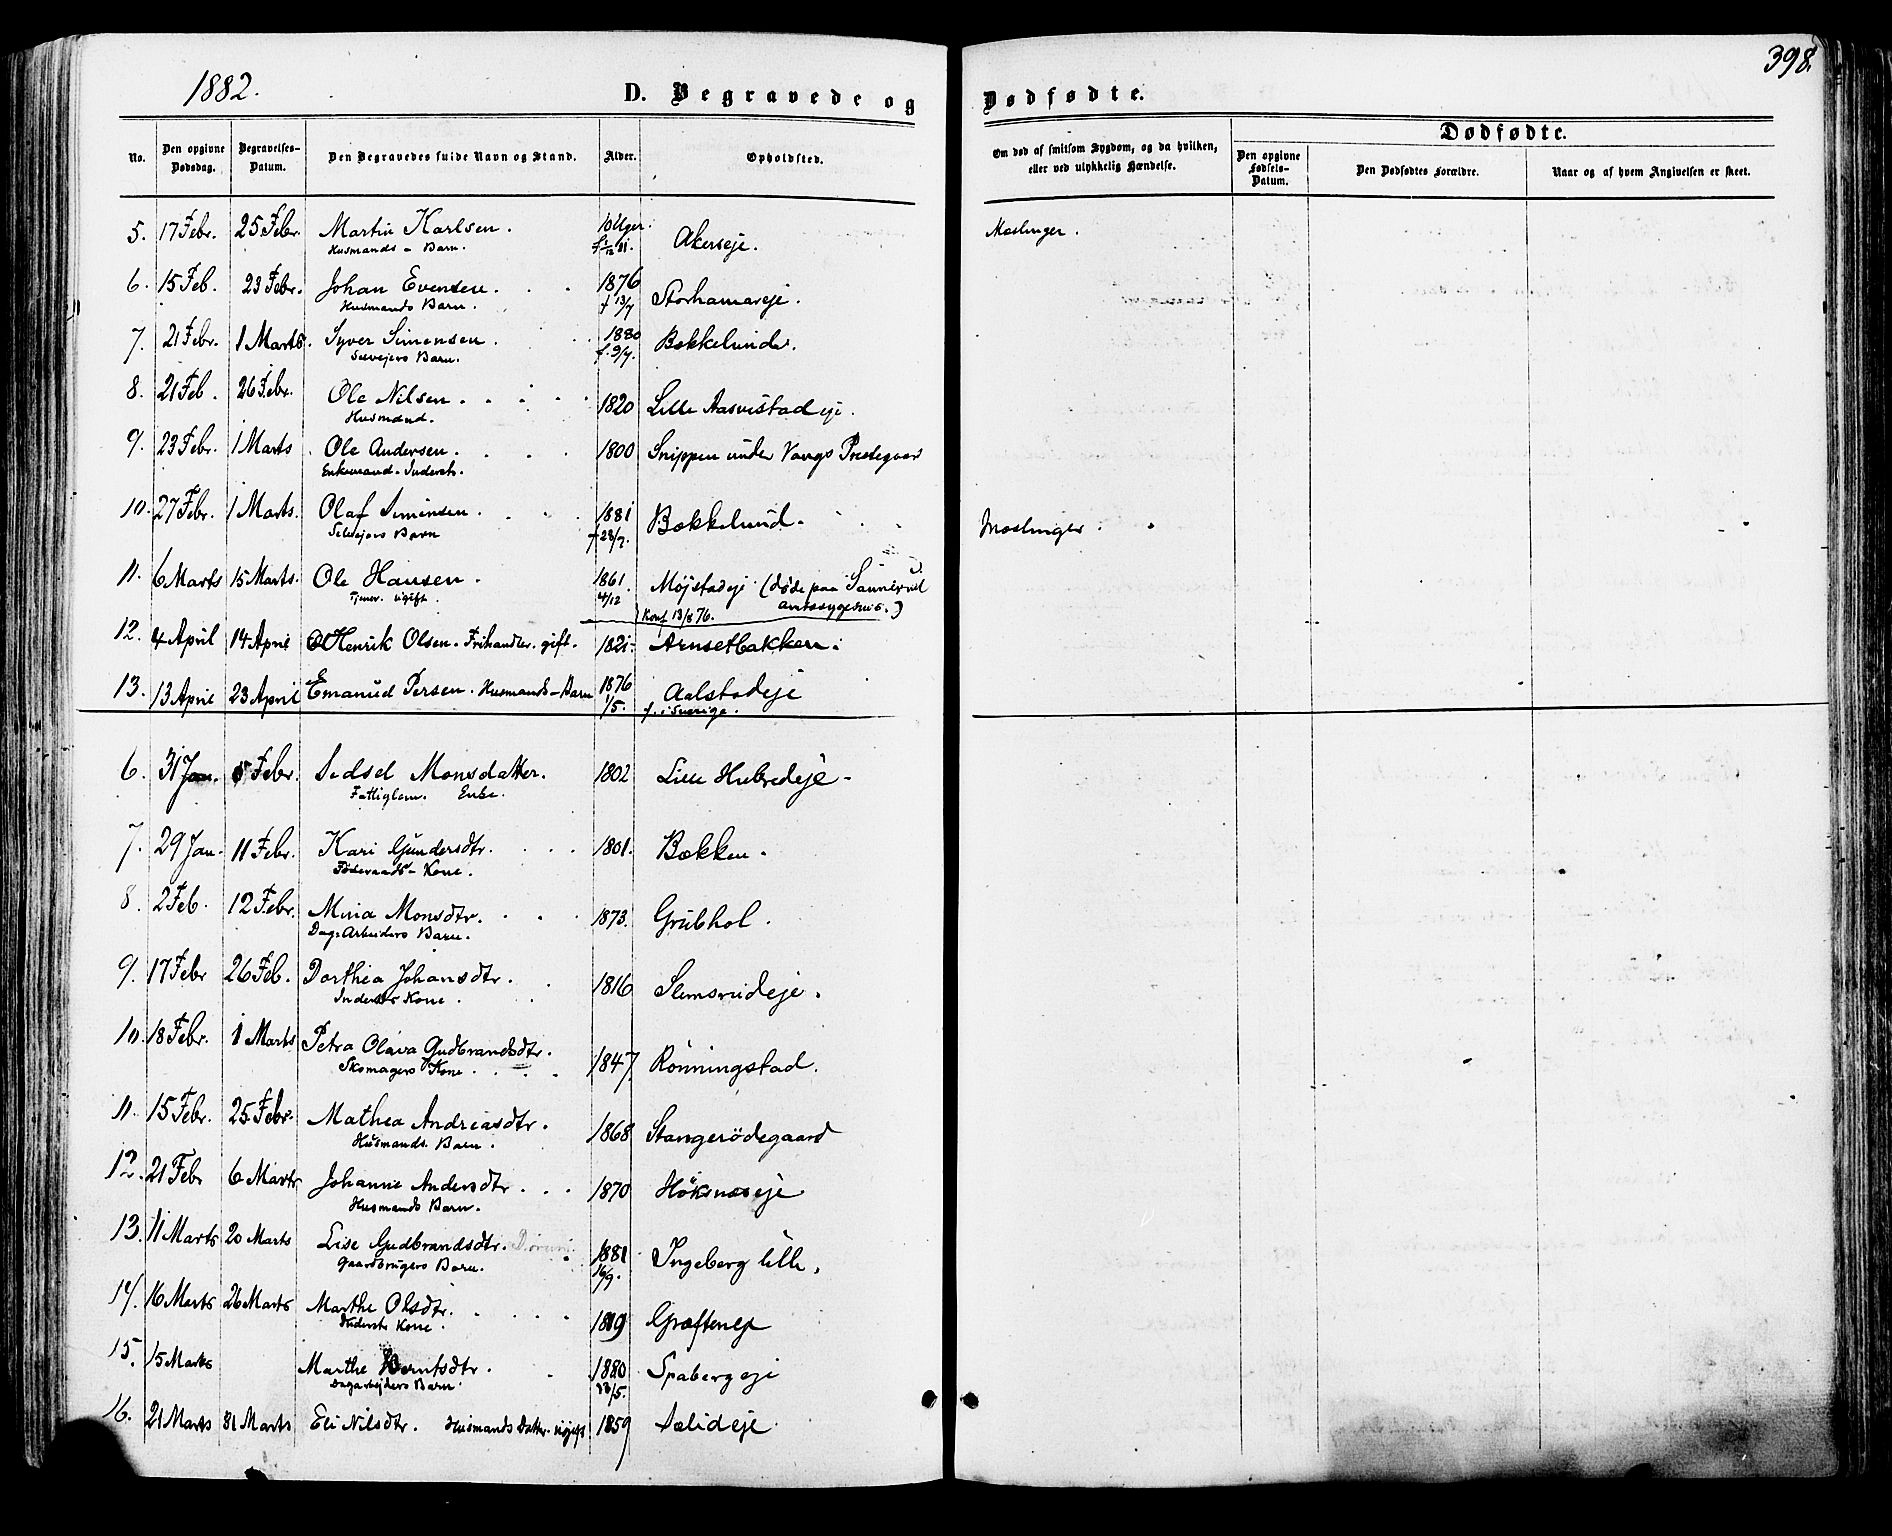 1882.
D. Begravede og
Dødfødte.
398.
No.
Den opgivne Dødsdag.
Begravelses-Datum.
Den Begravedes fulde Navn og Stand.
Alder.
Opholdsted.
Om død af smitsom Sygdom, og da hvilken, eller ved ulykkelig Hændelse.
Dødfødte.
Den opgivne Fødsels-Datum.
Den Dødfødtes Forældre.
Naar og af hvem Angivelsen er skeet.
5. 17 Febr. 25 Febr. Martin Karlsen. 10 Uger. Akerseje. Mæslinger.
Husmands-Barn. f. 1/12 81.
6. 15 Feb. 23 Febr. Johan Evensen. 1876 Storhamareje.
Husmands Barn. f 13/7
7. 21 Febr. 1 Marts. Syver Simensen. 1880 Bækkelunde.
Selvejers Barn. f. 9/7.
8. 21 Feb. 26 Febr. Ole Nilsen. 1820 Lille Aasvestad eje.
Husmand.
9. 23 Febr. 1 Marts Ole Andersen. 1800 Snippen under Vangs Prestegaard
Enkemand. Inderst.
10. 27 Febr. 1 Marts. Olaf Simensen. 1881 Bækkelund. Mæslinger.
Selvejers Barn f 28/7.
11. 6 Marts 15 Marts. Ole Hansen. 1861. Møjstadeje (døde paa Sannerud
Tjener. ugift. 4/12 amtssygehus.)
Konf 13/8 76.
12. 4 April 14 April Henrik Olsen. Frihandler. gift. 1821. Arnsetbakken.
13. 13 April 23 April Emanuel Persen. Husmands-Barn 1876 Aalstadeje
1/5. f. i Sverige.
6. 31 Jan. 5 Febr. Sidsel Monsdatter. 1802 Lille Hubredeje-
Fattiglem. Enke.
7. 29 Jan. 11 Febr. Kari Gundersdtr. 1801. Bækken.
Føderaads-Kone.
8. 2 Feb. 12 Febr. Mina Monsdtr. 1873. Grubhol.
Dag-Arbeiders Barn.
9. 17 Febr 26 Feb. Dorthea Johansdtr. 1816 Slemsrudeje.
Inderst Kone.
10. 18 Febr. 1 Marts Petra Olava Gudbrandsdtr. 1847. Rönningstad.
Skomagers Kone.
11. 15 Febr. 25 Febr. Mathea Andreasdtr. 1868 Stangerödegaard
Husmands. Barn.
12. 21 Febr 6 Marts Johanne Andersdtr. 1870 Høksnæseje
Husmands Barn.
13. 11 Marts 20 Marts Lise Gudbrandsdtr. 1881 Ingeberg lille.
Gaardbrugers Barn. 16/9.
14. 16 Marts 26 Marts Marthe Olsdtr. 1819 Græfteneje
Inderst Kone.
15. 15 Marts Marthe Berntsdtr. 1880 Spabergeje
Dagarbejders Barn. 23/5.
16. 21 Marts 31 Marts Eli Nilsdtr. Husmands Datter. ugift 1859 Sælideje